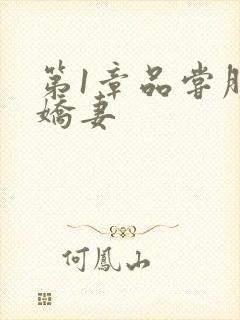 第1章品尝
娇妻
何鳳山